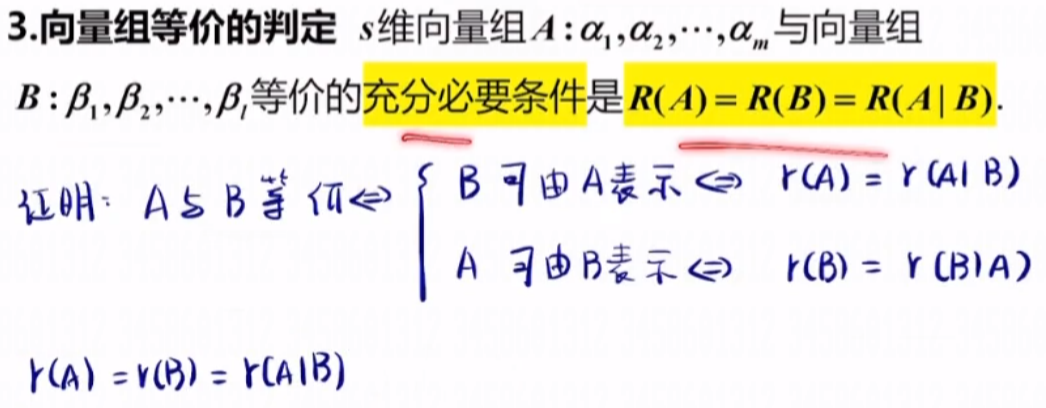 3.向量组等价的判定 s维向量组A:α₁,α₂,⋯,αₘ与向量组
B:β₁,β₂,⋯,βₗ等价的充分必要条件是R(A)=R(B)=R(A|B).
证明: A与B等价⇔{ B可由A表示⇔ r(A) = r(A|B)
A可由B表示⇔ r(B) = r(B|A)
r(A) = r(B) = r(A|B)